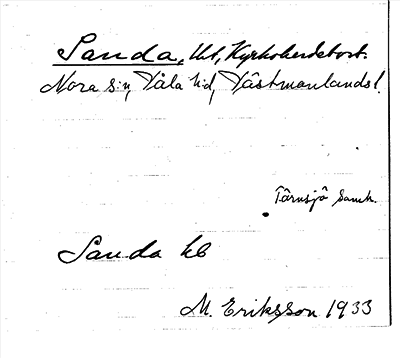 Sanda, kbt, Kyrkoherdebost.
Nora sn, Våla hd, Västmanlands l.
Tärnsjö samh.
Sanda kb
M. Eriksson 1933